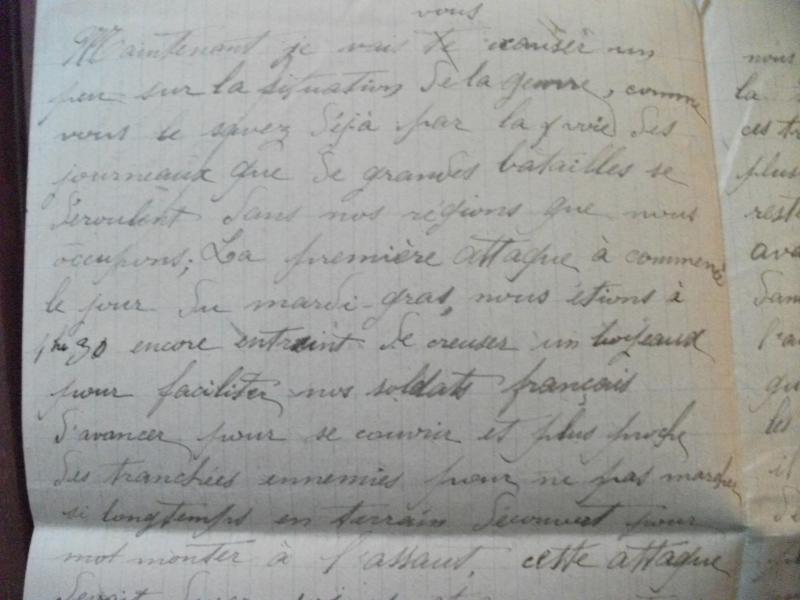 vous
Maintenant je vais te causer un
peu sur la situation de la guerre, comme
vous le savez déjà par la voie des
journeaux que de grandes batailles se
déroulent dans nos régions que nous
occupons; La première attaque à commencé
le jour du mardi-gras, nous étions à
30 encore entraint de creuser un boyeaux
pour faciliter nos soldats français
d'avancer pour se couvrir et plus proche
des tranchées ennemies pour ne pas marcher
si longtemps en terrain découvert pour
monter à l'assaut, cette attaque
devait
nous
la
ces
plus